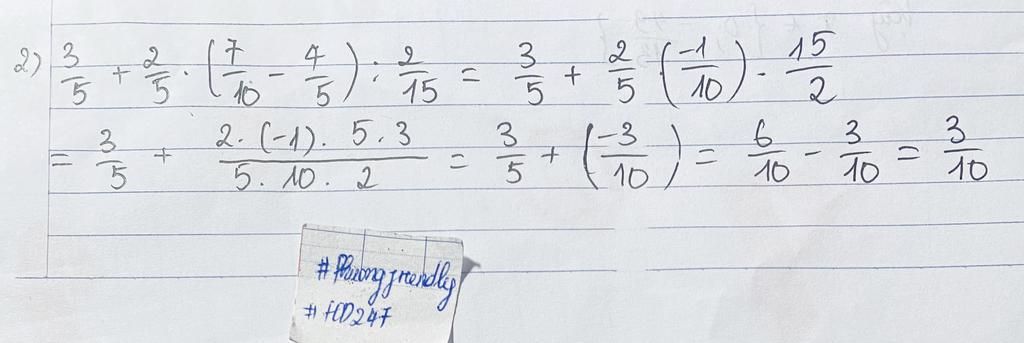 2) 3/5 + 2/5 · (7/10 - 4/5) : 2/15 = 3/5 + 2/5 · (-1/10) · 15/2
= 3/5 + (2 · (-1) · 5 · 3)/(5 · 10 · 2) = 3/5 + (-3/10) = 6/10 - 3/10 = 3/10
#Phuongfriendly
#FCD247